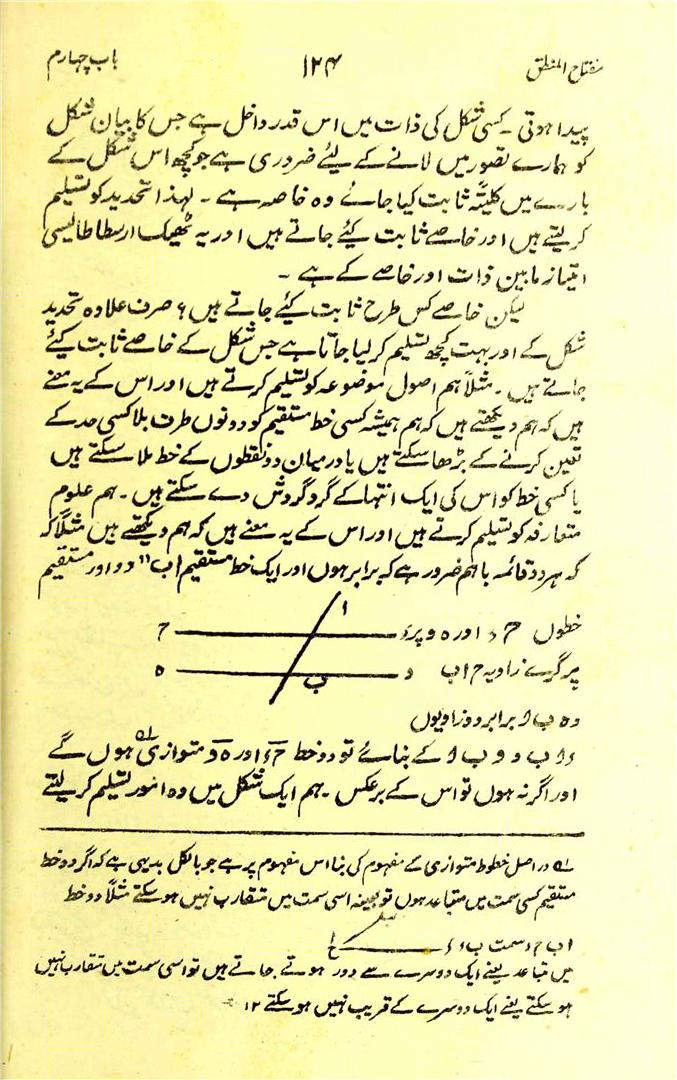 مفتاح المنطق ۱۲۴ باب چہارم
پیدا ہوتی ۔ کسی شکل کی ذات میں اس قدر داخل ہے جس کا بیان شکل
کو ہمارے تصور میں لانے کے لیئے ضروری ہے جو کچھ اس شکل کے
بارے میں کلیتہً ثابت کیا جائے وہ خاصہ ہے ۔ لہذا تحدید کو تسلیم
کر لیتے ہیں اور خاصے ثابت کیئے جاتے ہیں اور یہ ٹھیک ارسطاطالیسی
امتیاز مابین ذات اور خاصے کے ہے ۔
لیکن خاصے کس طرح ثابت کیئے جاتے ہیں ؟ صرف علاوہ تحدید
شکل کے اور بہت کچھ تسلیم کر لیا جاتا ہے جس شکل کے خاصے ثابت کیئے
جاتے ہیں ۔ مثلاً ہم اصول موضوعہ کو تسلیم کرتے ہیں اور اس کے یہ معنے
ہیں کہ ہم دیکھتے ہیں کہ ہم ہمیشہ کسی خط مستقیم کو دونوں طرف بلا کسی حد کے
تعین کرنے کے بڑھا سکتے ہیں یا درمیان دو نقطوں کے خط ملا سکتے ہیں
یا کسی خط کو اس کی ایک انتہا کے گرد گردش دے سکتے ہیں ۔ ہم علوم
متعارفہ کو تسلیم کرتے ہیں اور اس کے یہ معنے ہیں کہ ہم دیکھتے ہیں مثلاً کہ
کہ ہر دو قائمہ باہم ضرور ہے کہ برابر ہوں اور ایک خط مستقیم ا ب" دو اور مستقیم
خطوں ح د اور ہ و پر د ا ح
پر گرے زاویہ ح ا ب و ب ہ
و ہ ب ا برابر دو زاویوں
د ا ب و و ب ا کے بنائے تو دو خط ح د اور ہ و متوازی ہوں گے
اور اگر نہ ہوں تو اس کے برعکس ۔ ہم ایک شکل میں وہ امور تسلیم کر لیتے
در اصل خطوط متوازی کے مفہوم کی بنا اس مفہوم پر ہے جو بالکل بدیہی ہے کہ اگر دو خط
مستقیم کسی سمت میں متباعد ہوں تو بعینہ اسی سمت میں متقارب نہیں ہو سکتے مثلاً دو خط
میں متباعد یعنے ایک دوسرے سے دور ہوتے جاتے ہیں تو اسی سمت میں متقارب نہیں
ہو سکتے یعنے ایک دوسرے کے قریب نہیں ہو سکتے ۱۲